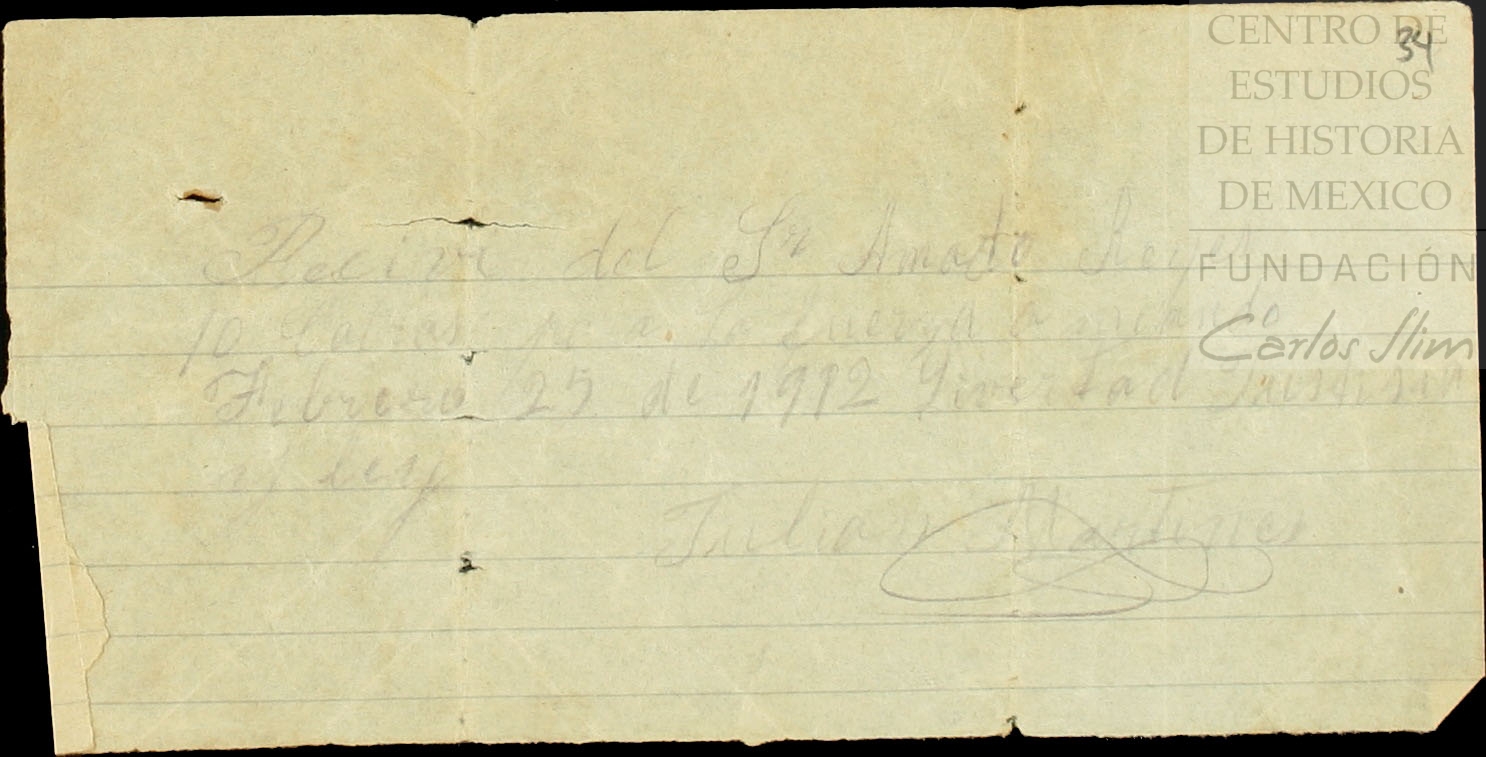 34
CENTRO DE
ESTUDIOS
DE HISTORIA
DE MEXICO
FUNDACIÓN
Carlos Slim
Recivi del Sr Amado Reyes
10 para la fuerza a mi mando
Febrero 25 de 1912 Livertad Justisia
y ley
Julian Martines